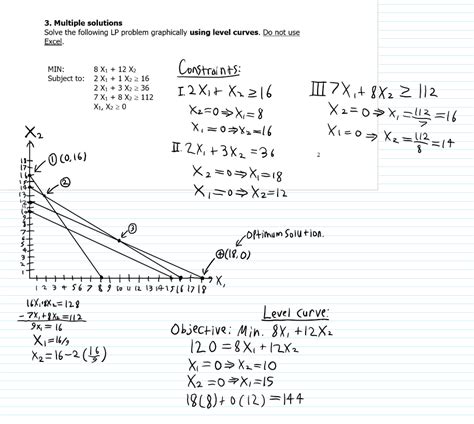 3. Multiple solutions
Solve the following LP problem graphically using level curves. Do not use
Excel.
MIN: 8 X₁ + 12 X₂
Subject to: 2 X₁ + 1 X₂ ≥ 16
2 X₁ + 3 X₂ ≥ 36
7 X₁ + 8 X₂ ≥ 112
X₁, X₂ ≥ 0
Constraints:
I. 2X₁ + X₂ ≥ 16
X₂=0 ⇒ X₁=8
X₁=0 ⇒ X₂=16
II. 2X₁ + 3X₂ = 36
X₂=0 ⇒ X₁=18
X₁=0 ⇒ X₂=12
III 7X₁ + 8X₂ ≥ 112
X₂=0 ⇒ X₁=112/7=16
X₁=0 ⇒ X₂=112/8=14
X₂
① (0,16)
②
③
Optimum solution.
④(18,0)
X₁
1 2 3 4 5 6 7 8 9 10 11 12 13 14 15 16 17 18
16X₁+8X₂=128
- 7X₁+8X₂=112
9X₁ = 16
X₁=16/9
X₂=16-2(16/9)
Level curve:
Objective: Min. 8X₁+12X₂
120=8X₁+12X₂
X₁=0 ⇒ X₂=10
X₂=0 ⇒ X₁=15
18(8)+0(12)=144